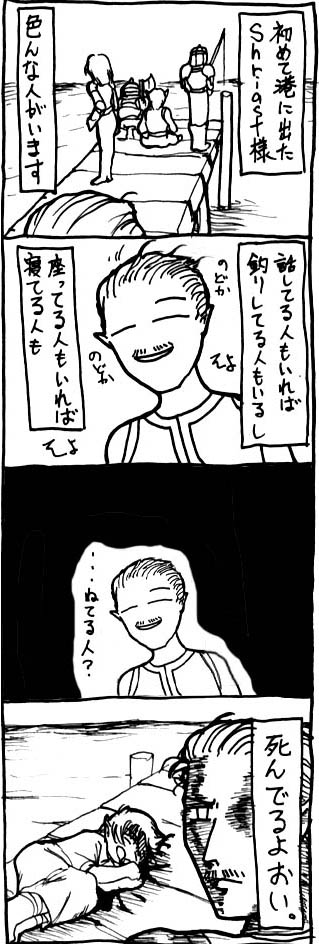 初めて港に出た
Shriast様
色んな人がいます
話してる人もいれば
釣りしてる人もいるし
のどか
そよ
座ってる人もいれば
寝てる人も
のどか
そよ
・・・ねてる人?
死んでるよおい。